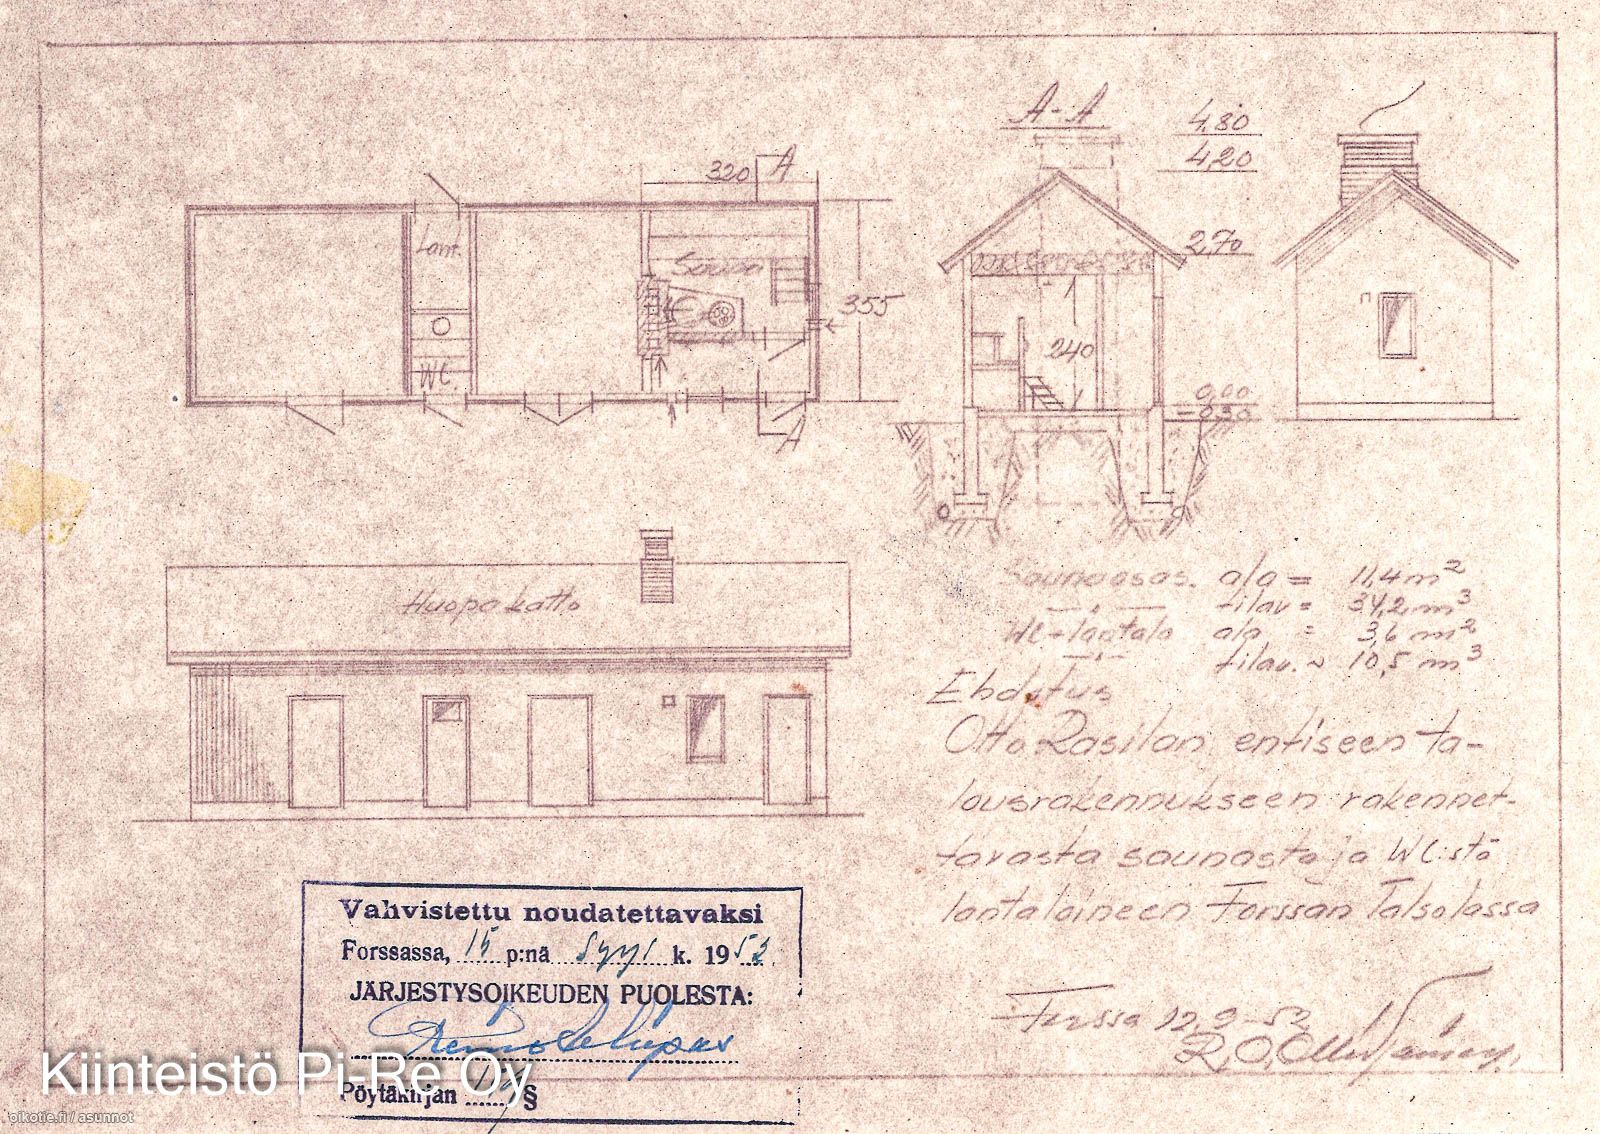 A-A
4,80
4,20
320
A
2,70
Lant.
Sauna
355
240
WC.
0,00
-0,30
A
Huopakatto
Saunaosas. ala = 11,4 m²
tilav = 34,2 m³
WC-lantala ala = 3,6 m²
tilav. ~ 10,5 m³
Ehdotus
Otto Rasilan entiseen ta-
lousrakennukseen rakennet-
tavasta saunasta ja WC:stä
lantaloineen Forssan Talsolassa
Forssa 12.9-52
Vahvistettu noudatettavaksi
Forssassa, 15 p:nä syys k. 1952
JÄRJESTYSOIKEUDEN PUOLESTA:
Pöytäkirjan §
Kiinteistö Pi-Re Oy
oikotie.fi / asunnot